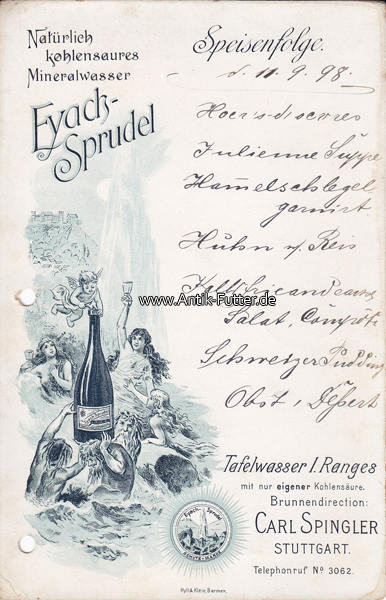 Natürlich
kohlensaures
Mineralwasser
Eyach-
Sprudel
Speisenfolge.
d. 11. 9. 98.
Hors-d'oeuvres
Julienne Suppe
Hamelschlegel
garnirt
Huhn m. Reis
Salat, Compots
Schweizer Pudding
Obst, Dessert
www.Antik-Futter.de
Tafelwasser I. Ranges
mit nur eigener Kohlensäure.
Brunnendirection:
CARL SPINGLER
STUTTGART.
Telephonruf No 3062.
Eyach-Sprudel
SCHUTZ-MARKE
Hyll & Klein, Barmen.